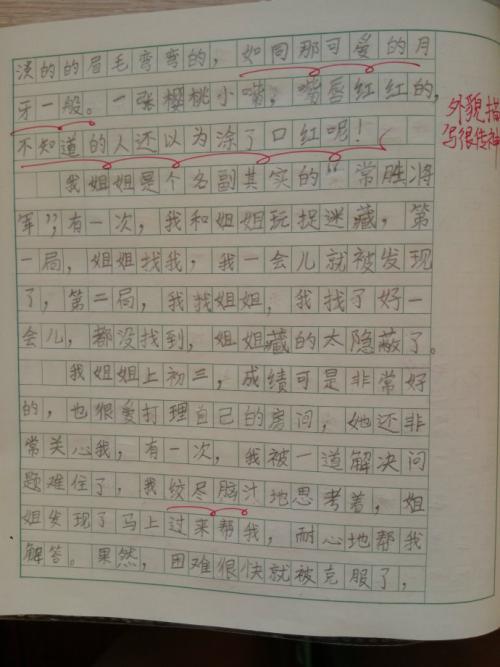 淡的的眉毛弯弯的，如同那可爱的月
牙一般。一张樱桃小嘴，嘴唇红红的，
不知道的人还以为涂了口红呢！
外貌描
写很传神
我姐姐是个名副其实的“常胜将
军”，有一次，我和姐姐玩捉迷藏，第
一局，姐姐找我，我一会儿就被发现
了，第二局，我找姐姐，我找了好一
会儿，都没找到，姐姐藏的太隐蔽了。
我姐姐上初三，成绩可是非常好
的，也很爱打理自己的房间，她还非
常关心我，有一次，我被一道解决问
题难住了，我绞尽脑汁地思考着，姐
姐发现了马上过来帮我，耐心地帮我
解答。果然，困难很快就被克服了，